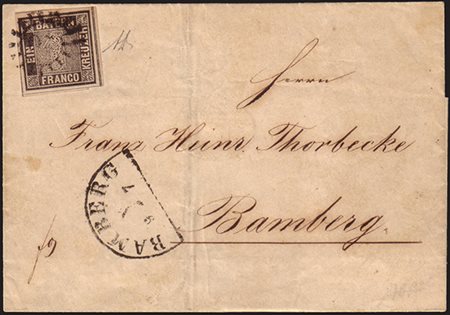 BAYERN
EIN
KREUZER
FRANCO
Herrn
Franz Heinr. Thorbecke
Bamberg.
BAMBERG